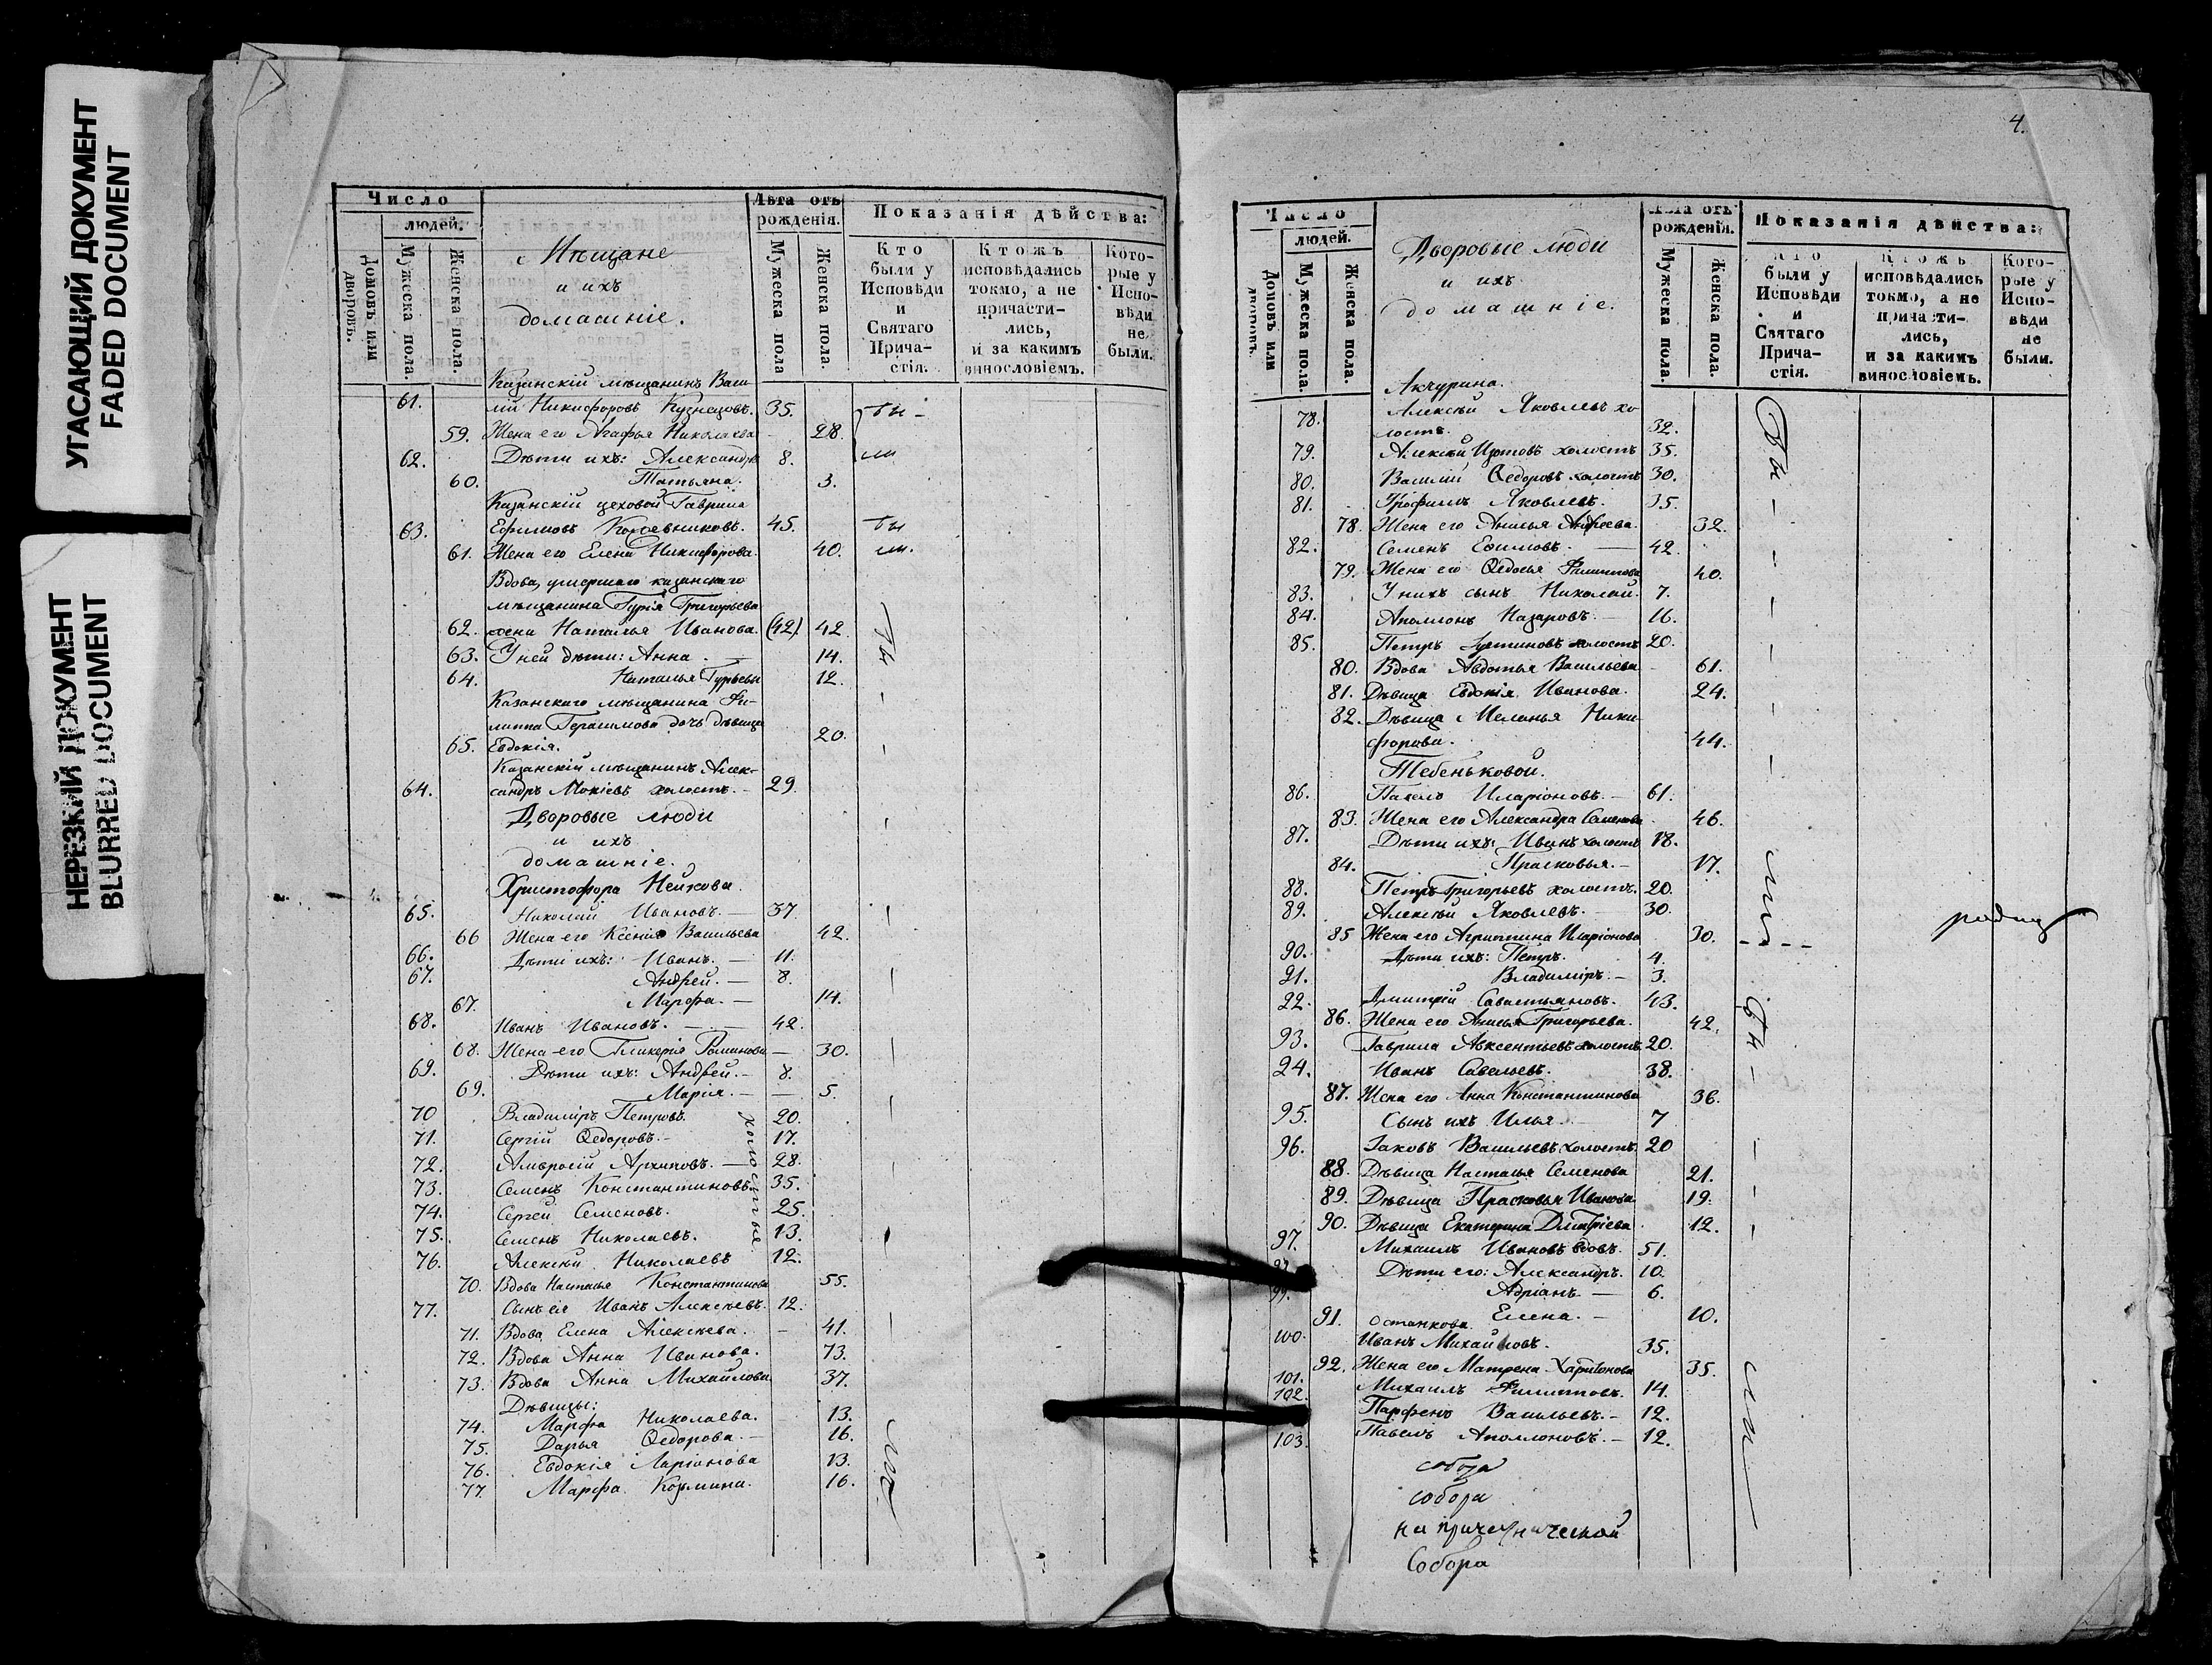 УГАСАЮЩИЙ ДОКУМЕНТ
FADED DOCUMENT
НЕРЕЗКИЙ ДОКУМЕНТ
BLURRED DOCUMENT
Число
людей.
Домовъ или дворовъ.
Мужеска пола.
Женска пола.
Мѣщане
и ихъ
домашніе.
Лѣта отъ рожденія.
Мужеска пола
Женска пола.
Показанія дѣйства:
Кто были у Исповѣди и Святаго Прича-стія.
Ктожъ исповѣдались токмо, а не причасти-лись, и за какимъ винословіемъ.
Кото-рые у Испо-вѣди не были.
Казанскій мѣщанинъ Васи
61. лій Никифоровъ Кузнецовъ. 35. бы-
59. Жена его Агафья Николаева 28.
62. Дѣти ихъ: Александръ 8. ли
60. Татьяна. 3.
Казанскій цеховой Гаврила
63. Ефимовъ Кожевниковъ. 45. бы
61. Жена его Елена Никифорова. 40. ли.
Вдова, умершаго казанскаго
мѣщанина Гурія Григорьева
62. жена Наталья Иванова. (42) 42. бы
63. У ней дѣти: Анна. — 14.
64. Наталья Гурьевы 12.
Казанскаго мѣщанина Фи-
липпа Герасимова дочь дѣвица
65. Евдокія. 20.
Казанскій мѣщанинъ Алек-
64. сандръ Мокіевъ холостъ. — 29.
Дворовые люди
и ихъ
домашніе.
Христофора Нейкова.
65. Николай Ивановъ. — 37.
66 Жена его Ксенія Васильева 42.
66. Дѣти ихъ: Иванъ. — 11.
67. Андрей. — 8.
67. Марфа. — 14.
68. Иванъ Ивановъ. — 42.
68. Жена его Гликерія Романова — 30.
69. Дѣти ихъ: Андрей. — 8.
69. Марія. — 5.
70 Владиміръ Петровъ. 20.
71. Сергій Ѳедоровъ. — 17.
72. Амвросій Архиповъ. — 28.
73. Семенъ Константиновъ. 35.
74. Сергей Семеновъ. 25.
75. Семенъ Николаевъ. 13.
76. Алексѣй Николаевъ 12.
холостые
70. Вдова Наталья Константинова 55.
77. Сынъ ея Иванъ Алексѣевъ. 12.
71. Вдова Елена Алексѣева. — 41.
72. Вдова Анна Иванова. 73.
73. Вдова Анна Михайлова 37.
Дѣвицы:
74. Марфа Николаева. 13.
75. Дарья Ѳедорова. — 16.
76. Евдокія Ларіонова 13.
77. Марфа Козьмина. 16.
ли
4.
Число
людей.
Домовъ или дворовъ.
Мужеска пола.
Женска пола.
Дворовые люди
и ихъ
домашніе.
Лѣта отъ рожденія.
Мужеска пола.
Женска пола.
Показанія дѣйства:
Кто были у Исповѣди и Святаго Прича-стія.
Ктожъ исповѣдались токмо, а не причасти-лись, и за какимъ винословіемъ.
Кото-рые у Испо-вѣди не были.
Акчурина.
78. Алексѣй Яковлевъ хо
лостъ. 32. Бы
79. Алексѣй холостъ 35.
80. Василій Ѳедоровъ холостъ 30.
81. Трофимъ Яковлевъ. 35.
78. Жена его Анисья Андреева. 32.
82. Семенъ Ефимовъ. — 42.
79. Жена его Ѳедосья Филиппова 40.
83. У нихъ сынъ Николай. 7.
84. Аполлонъ Назаровъ. — 16.
85. Петръ холостъ 20.
80. Вдова Авдотья Васильева 61.
81. Дѣвица Евдокія Иванова. 24.
82. Дѣвица Меланья Ники
форова. 44.
Тебеньковой.
86. Павелъ Иларіоновъ. — 61.
83. Жена его Александра Семенова 46.
87. Дѣти ихъ: Иванъ холостъ 18.
84. Прасковья. — 17.
88. Петръ Григорьевъ холостъ. 20.
89. Алексѣй Яковлевъ. 30. ли
85 Жена его Агриппина Иларіонова 30.
90. Дѣти ихъ: Петръ. 4.
91. Владиміръ. — 3.
92 Дмитрій Савастьяновъ. 43. бы
86. Жена его Анисья Григорьева. 42.
93. Гаврила Авксентьевъ холостъ 20.
94. Иванъ Савельевъ. 38.
87. Жена его Анна Константинова 36.
95. Сынъ ихъ Илья. 7
96. Іаковъ Васильевъ холостъ. 20
88. Дѣвица Наталья Семенова 21.
89. Дѣвица Прасковья Иванова 19.
90. Дѣвица Екатерина Дмитріева 12.
97. Михаилъ Ивановъ вдовъ. 51.
98. Дѣти его: Александръ. 10.
99. Адріанъ — 6.
91. Елена. — 10.
Останкова
100. Иванъ Михайловъ. 35.
92. Жена его Матрена Харитонова 35.
101. Михаилъ Филипповъ. 14. ли
102. Парфенъ Васильевъ. — 12.
103. Павелъ Аполлоновъ. — 12.
собора
собора
Собора